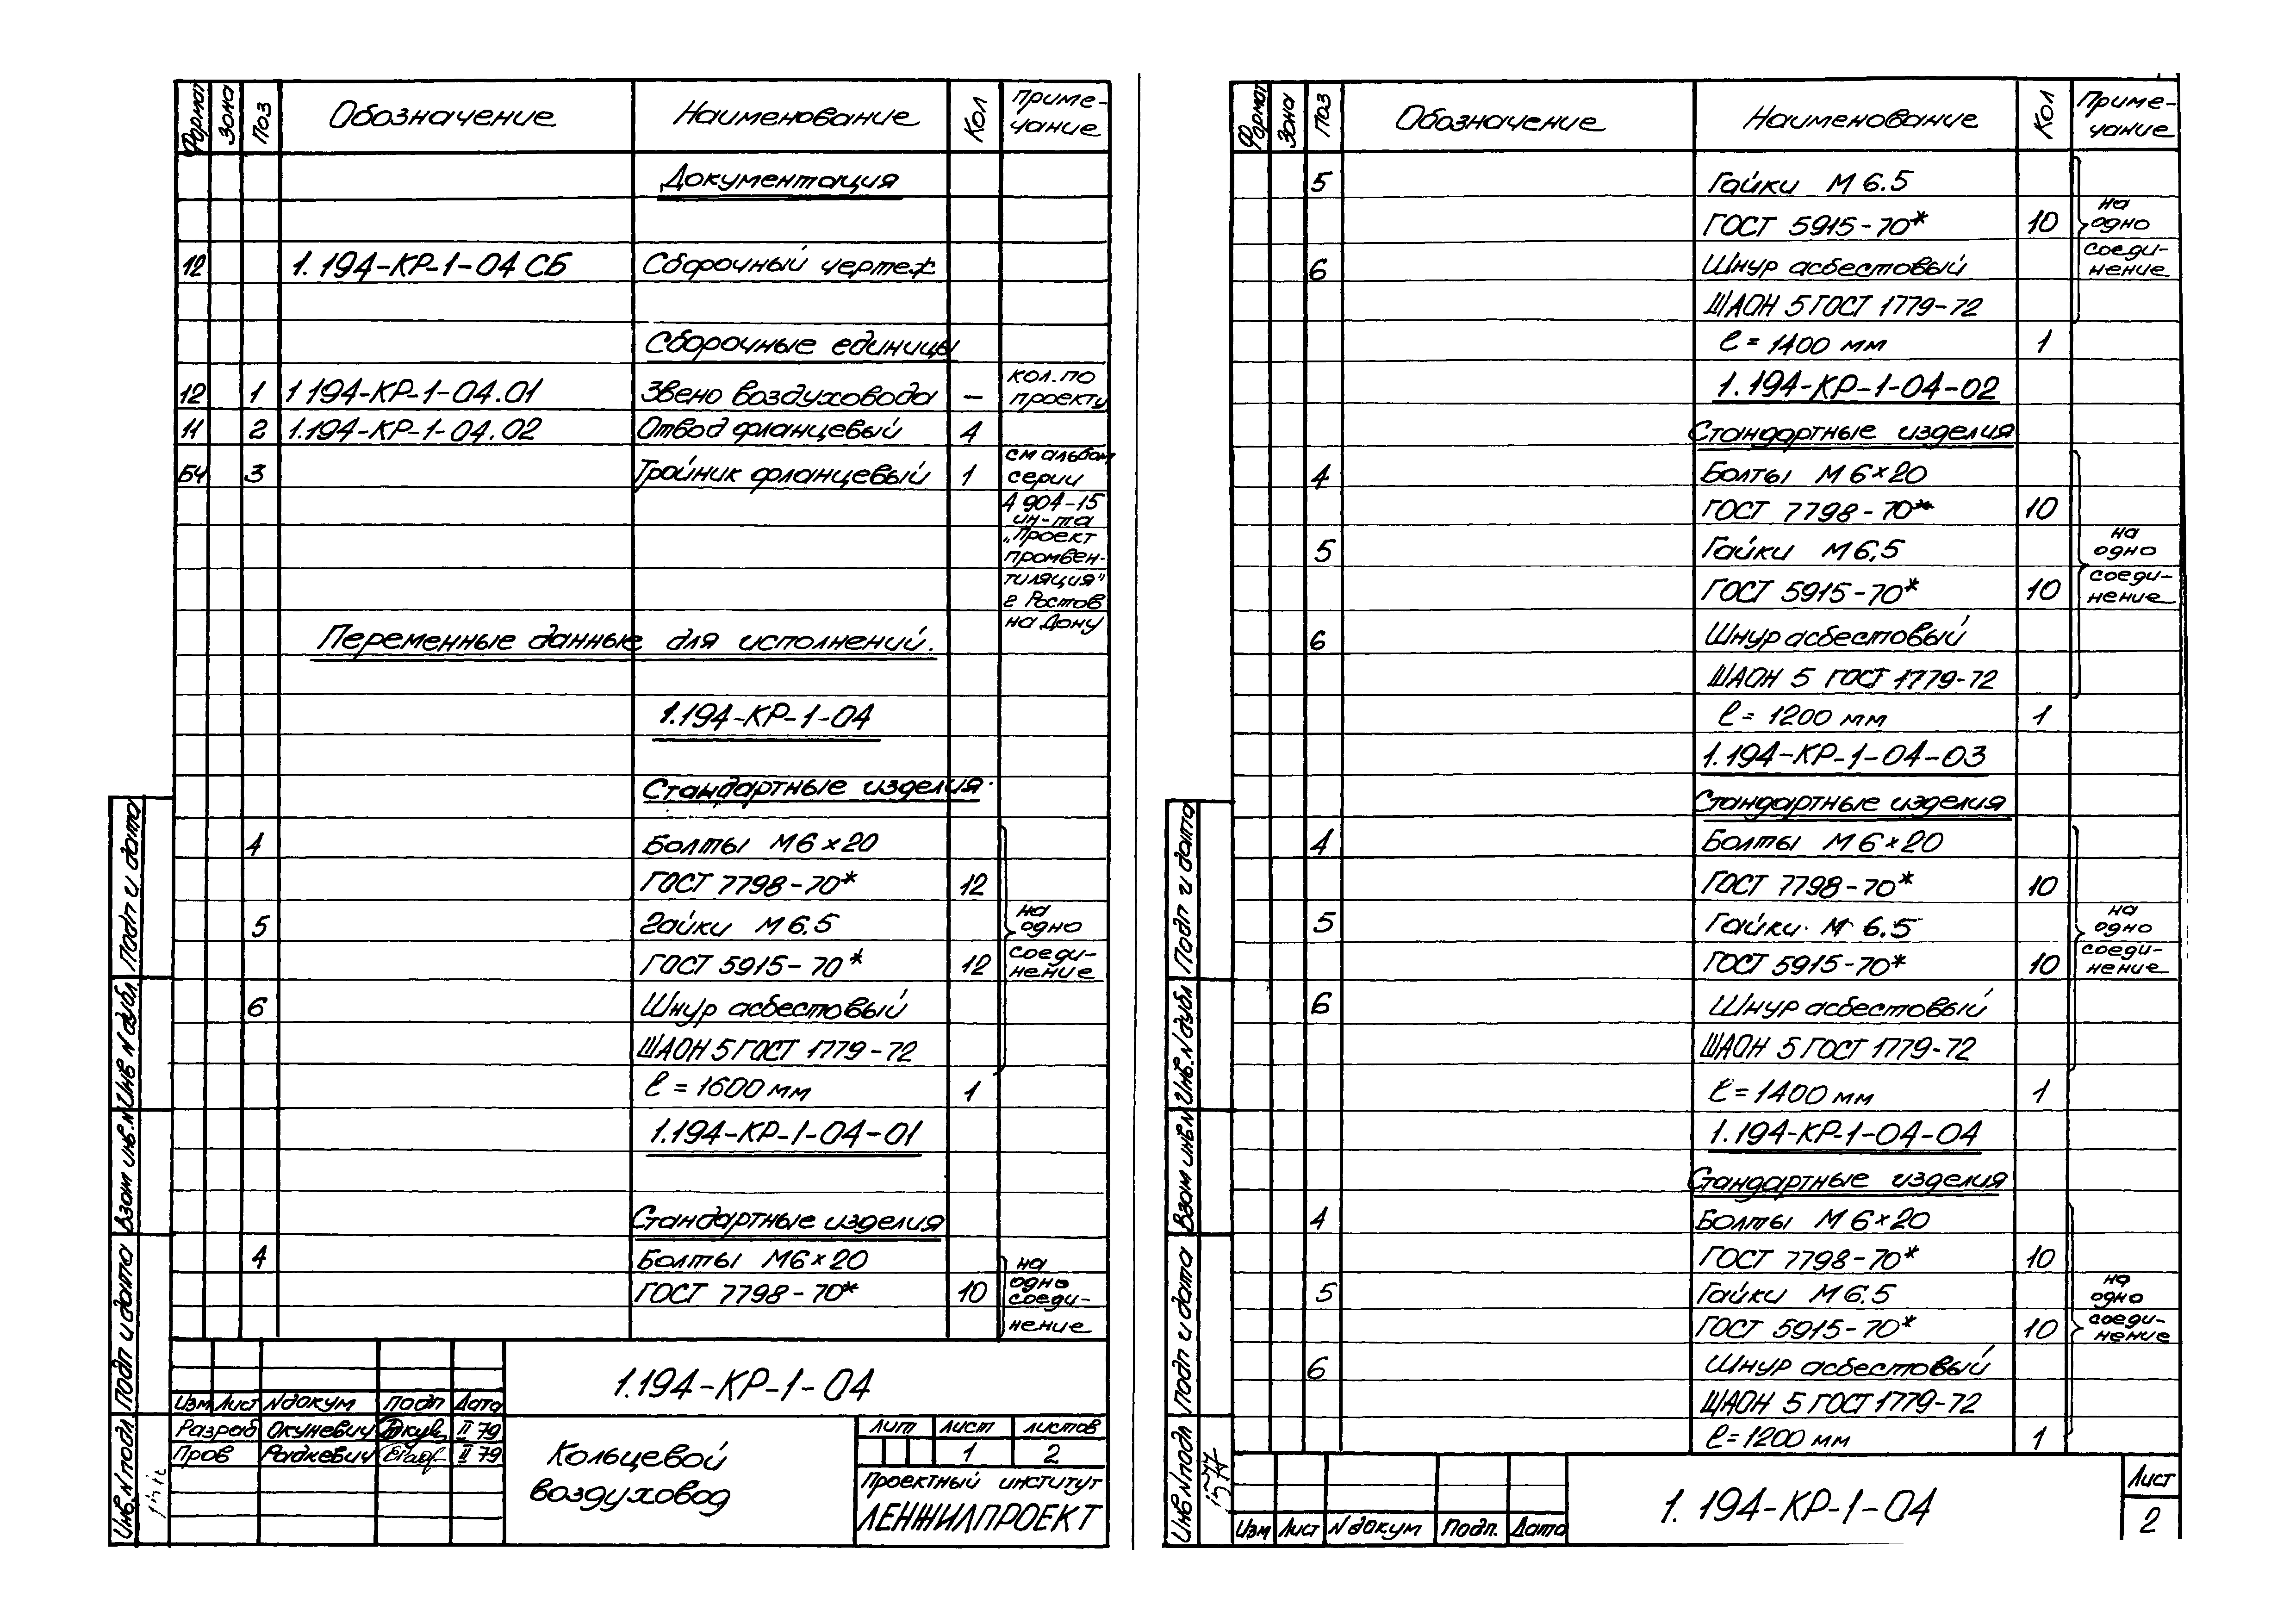 Формат Зона Поз Обозначение Наименование Кол Приме-
чание
Документация
12 1.194-КР-1-04 СБ Сборочный чертеж
Сборочные единицы
12 1 1 194-КР-1-04.01 Звено воздуховода — кол. по
проекту
11 2 1.194-КР-1-04.02 Отвод фланцевый 4
БЧ 3 Тройник фланцевый 1 см альбом
серии
4 904-15
ин-та
„Проект
промвен-
тиляция"
г Ростов
на Дону
Переменные данные для исполнений.
1.194-КР-1-04
Стандартные изделия
4 Болты М6×20
ГОСТ 7798-70* 12
5 гайки М 6.5
ГОСТ 5915-70* 12
на
одно
соеди-
нение
6 Шнур асбестовый
ШАОН 5 ГОСТ 1779-72
ℓ = 1600 мм 1
1.194-КР-1-04-01
Стандартные изделия
4 Болты М6×20
ГОСТ 7798-70* 10
на
одно
соеди-
нение
Подп и дата
Инв. N дубл.
Взам инв. N
Подп и дата
Инв. N подл.
1.194-КР-1-04
Изм Лист N докум Подп Дата
Разраб Окуневич II 79
Пров Радкевич II 79
Кольцевой
воздуховод
Лит Лист листов
1 2
Проектный институт
ЛЕНЖИЛПРОЕКТ
Формат Зона Поз Обозначение Наименование Кол Приме-
чание
5 Гайки М 6.5
ГОСТ 5915-70* 10
6 Шнур асбестовый
ШАОН 5 ГОСТ 1779-72
на
одно
соеди-
нение
ℓ = 1400 мм 1
1.194-КР-1-04-02
Стандартные изделия
4 Болты М 6×20
ГОСТ 7798-70* 10
5 Гайки М 6.5
ГОСТ 5915-70* 10
на
одно
соеди-
нение
6 Шнур асбестовый
ШАОН 5 ГОСТ 1779-72
ℓ = 1200 мм 1
1.194-КР-1-04-03
Стандартные изделия
4 Болты М 6×20
ГОСТ 7798-70* 10
5 Гайки М 6.5
ГОСТ 5915-70* 10
на
одно
соеди-
нение
6 Шнур асбестовый
ШАОН 5 ГОСТ 1779-72
ℓ = 1400 мм 1
1.194-КР-1-04-04
Стандартные изделия
4 Болты М 6×20
ГОСТ 7798-70* 10
5 Гайки М 6.5
ГОСТ 5915-70* 10
на
одно
соеди-
нение
6 Шнур асбестовый
ШАОН 5 ГОСТ 1779-72
ℓ = 1200 мм 1
Подп и дата
Инв. N дубл
Взам инв N
Подп и дата
Инв N подл
Изм Лист N докум Подп. Дата
1. 194-КР-1-04
Лист
2